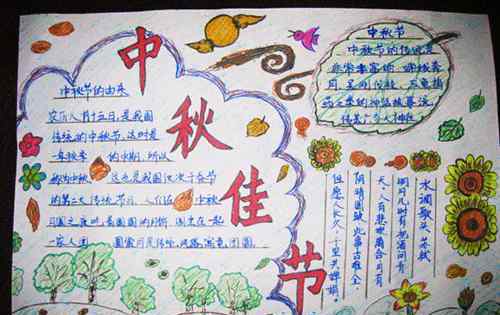 中秋佳节
中秋节的由来
农历八月十五日,是我国
传统的中秋节,这时是
一年秋季 的中期,所以
称为中秋 这也是我国仅次于春节
的第二大传统节日,人们在 中秋
一家人团
中秋节
中秋节的传说是
非常丰富的 嫦娥奔
月,吴刚伐桂,玉兔捣
药之类的神话故事流
传甚广
水调歌头 苏轼
明月几时有,把酒问青
天,人有悲欢离合,月有
阴晴圆缺,此事古难全,
但愿人长久,千里共婵娟。